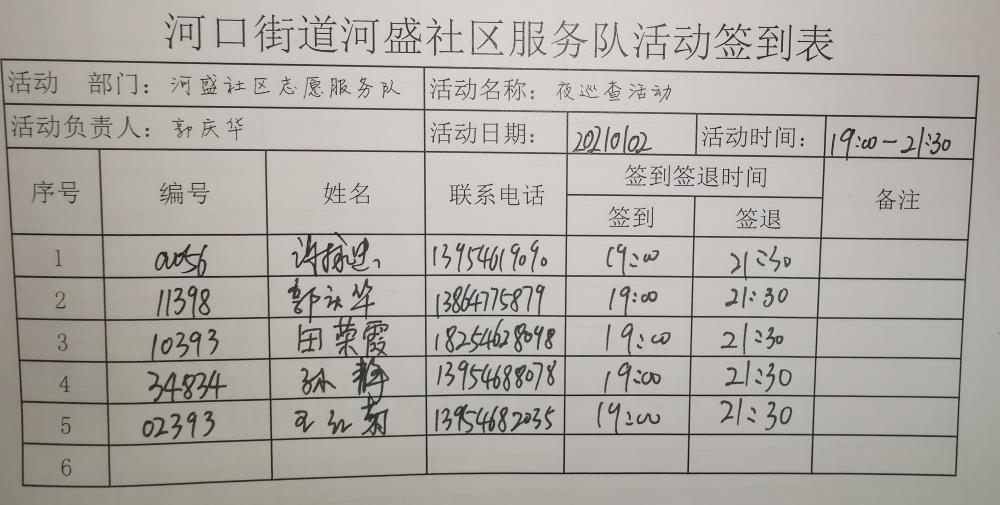 河口街道河盛社区服务队活动签到表
活动 部门：河盛社区志愿服务队 活动名称：夜巡查活动
活动负责人：郭庆华 活动日期：20210102 活动时间：19:00-21:30
序号 编号 姓名 联系电话 签到签退时间 备注
签到 签退
1 0056 13954619090 19:00 21:30
2 11398 郭庆华 13864775879 19:00 21:30
3 10393 田荣霞 18254628098 19:00 21:30
4 34834 孙 13954688078 19:00 21:30
5 02393 王红菊 13954682035 19:00 21:30
6